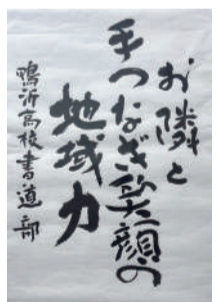 お隣と
手つなぎ笑顔の
地域力
鴨沂高校書道部